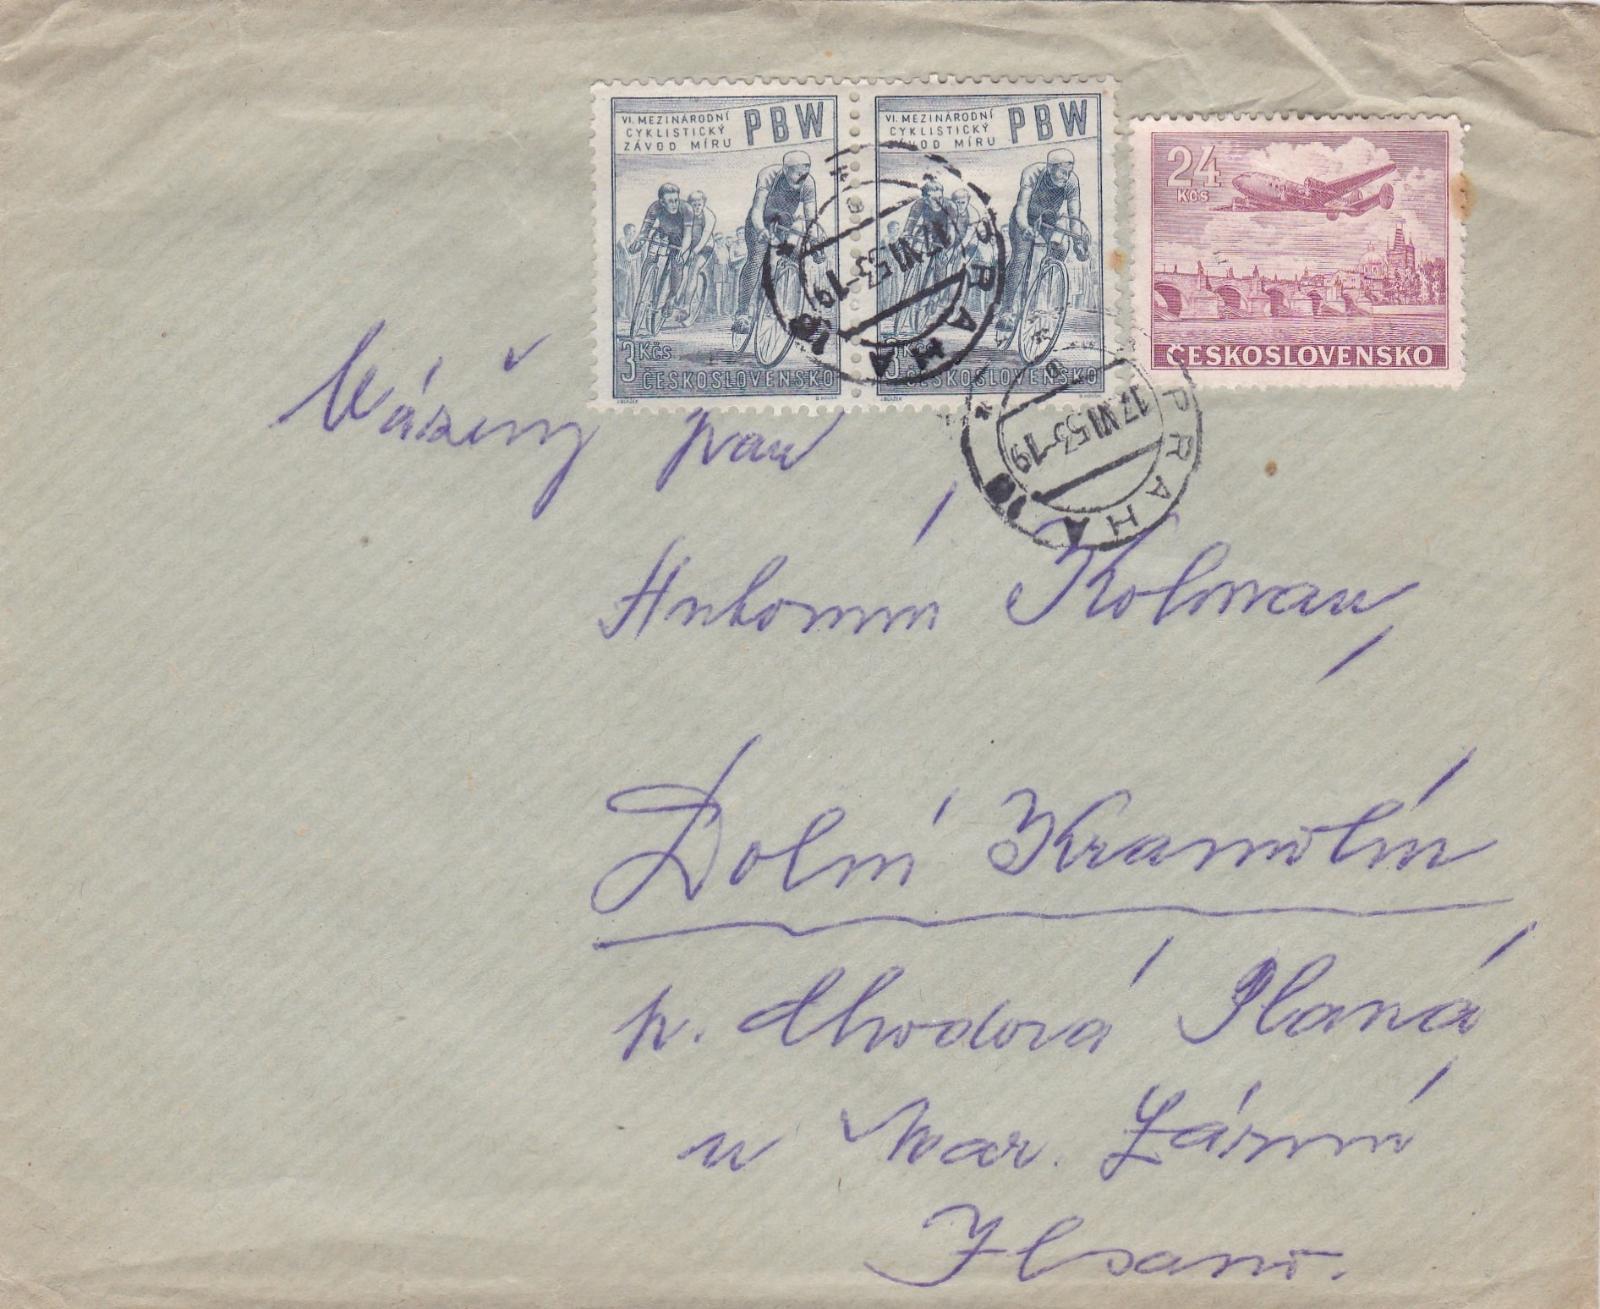 VI. MEZINÁRODNÍ
CYKLISTICKÝ
ZÁVOD MÍRU
PBW
3 Kčs
ČESKOSLOVENSKO
VI. MEZINÁRODNÍ
CYKLISTICKÝ
ZÁVOD MÍRU
PBW
3 Kčs
ČESKOSLOVENSKO
24
Kčs
ČESKOSLOVENSKO
PRAHA
17.VI.53-19
PRAHA
17.VI.53-19
Vážený pan
Antonín Kolman,
Dolní Kramolín
p. Chodová Planá
u Mar. Lázní